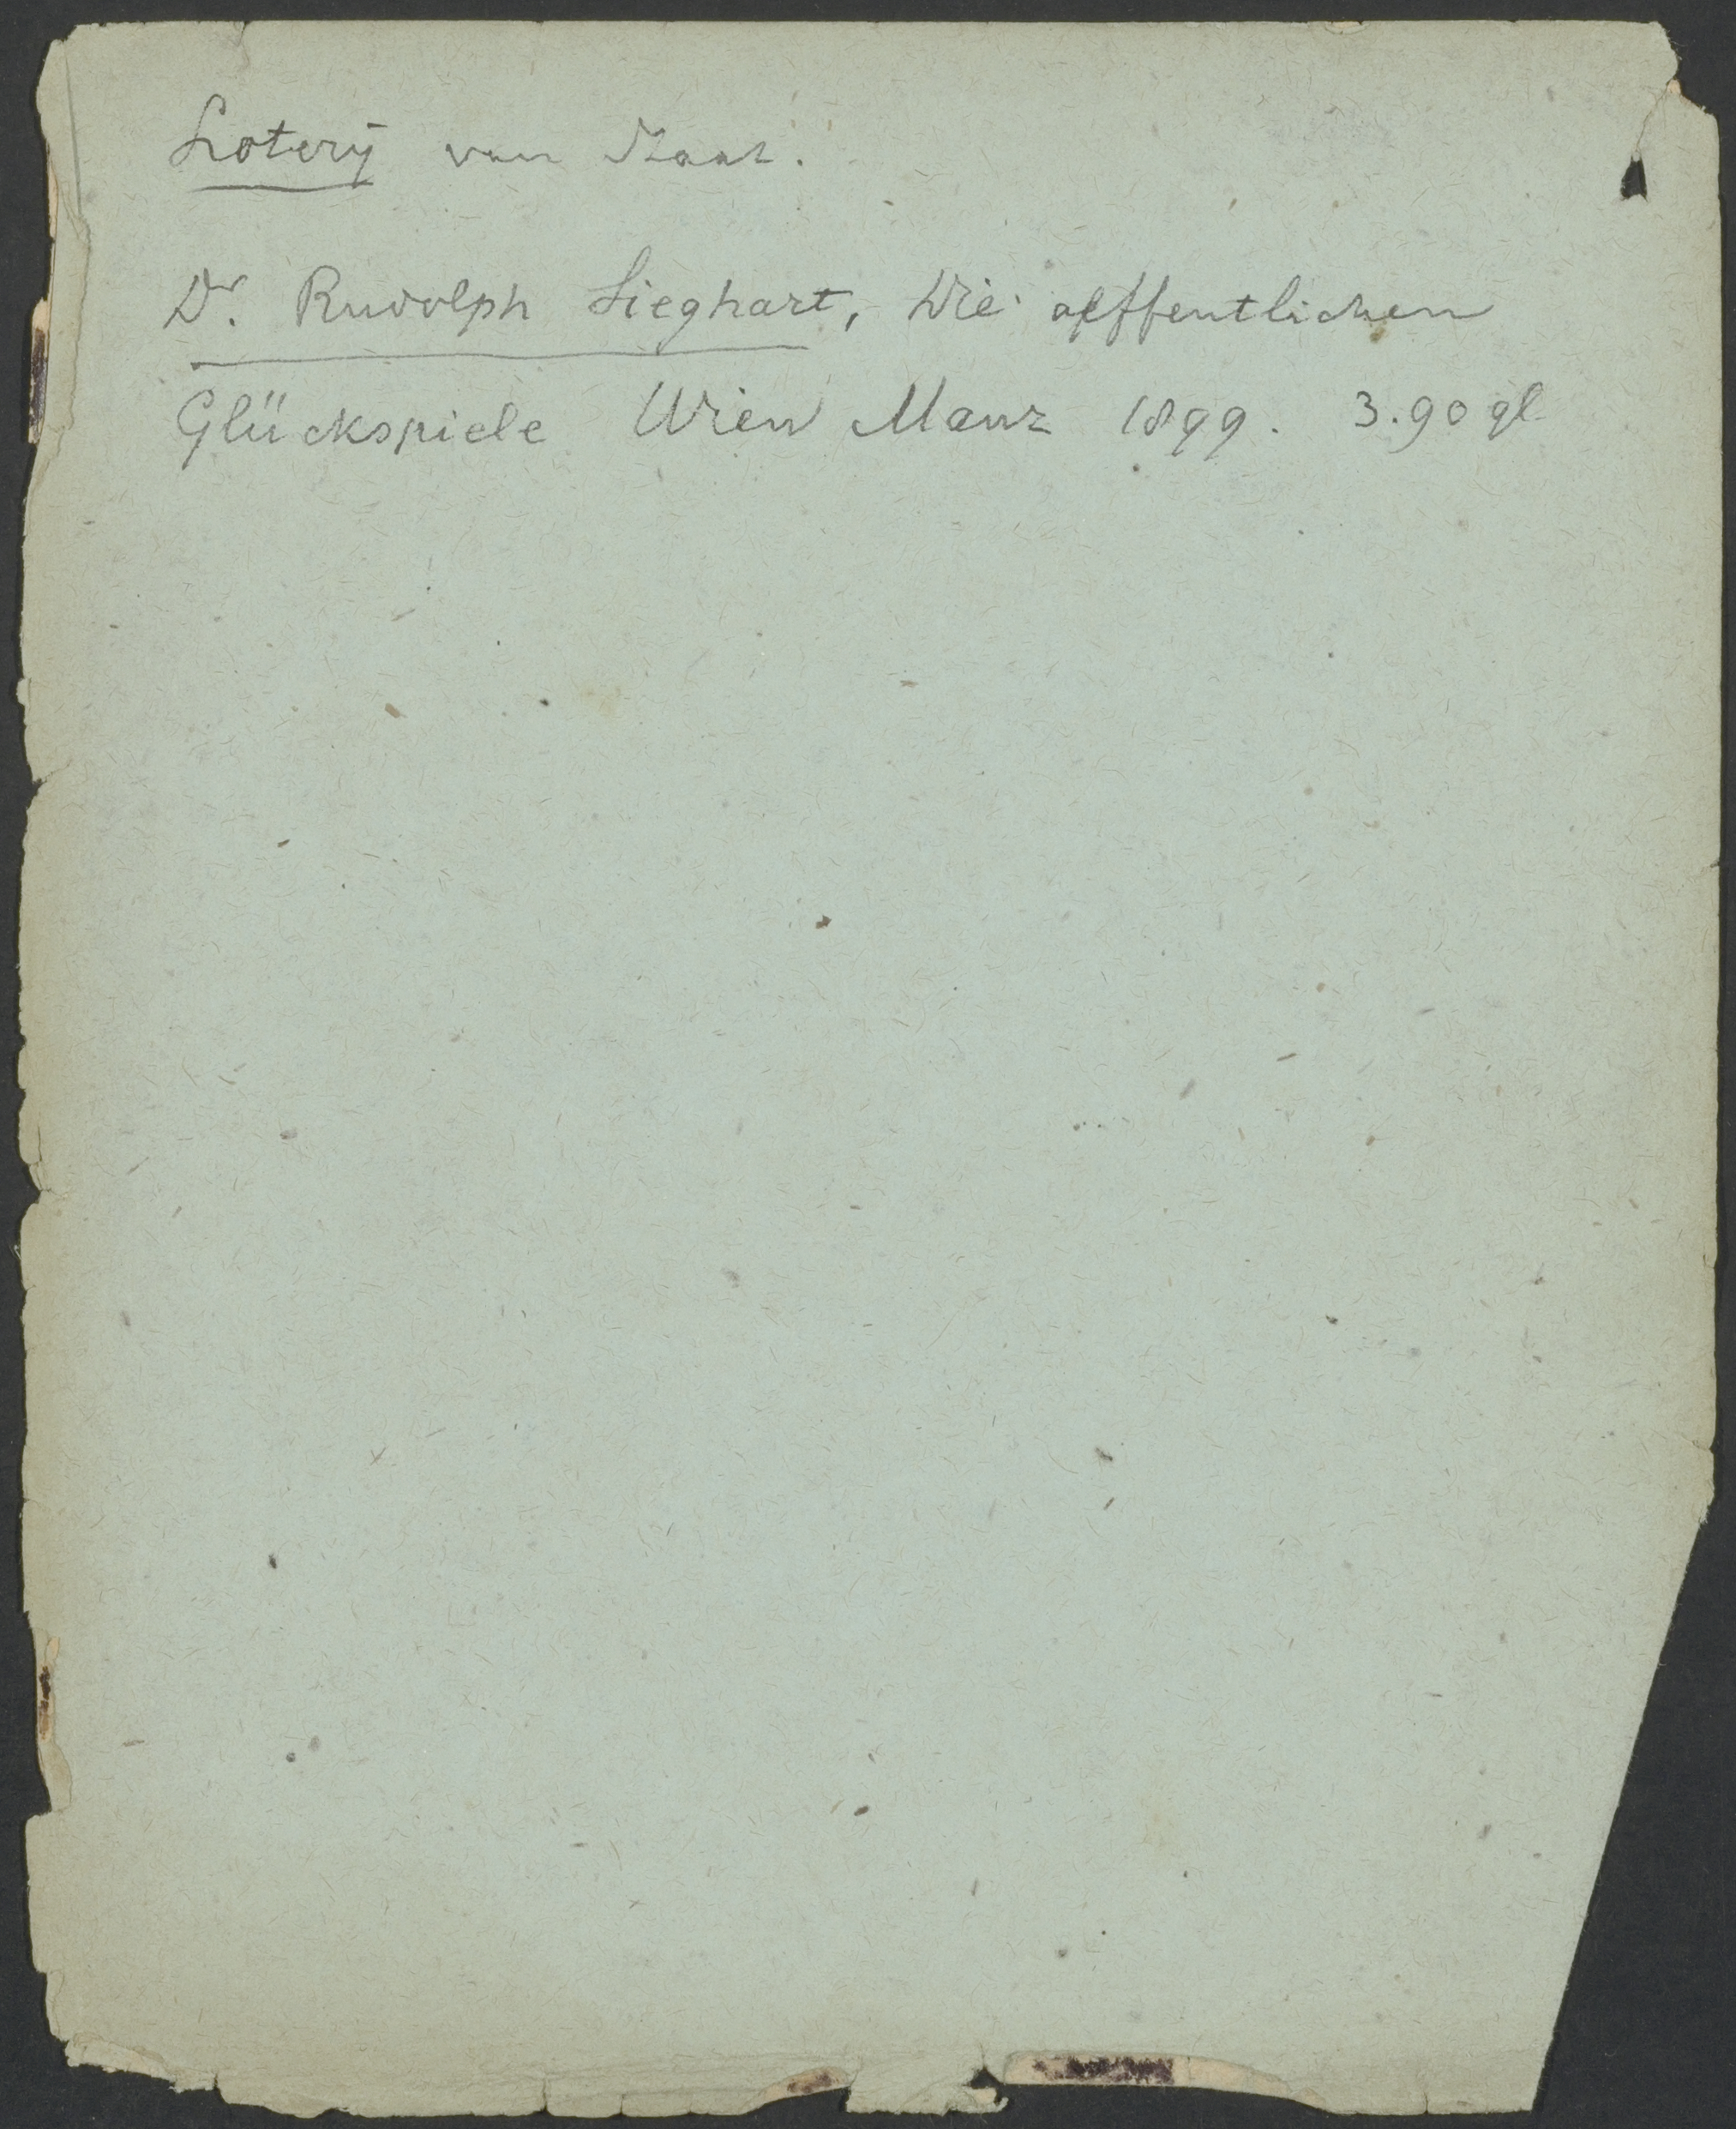 Loterij van Staat.
Dr. Rudolph Sieghart, Die oeffentlichen
Glückspiele Wien Manz 1899. 3.90 gl